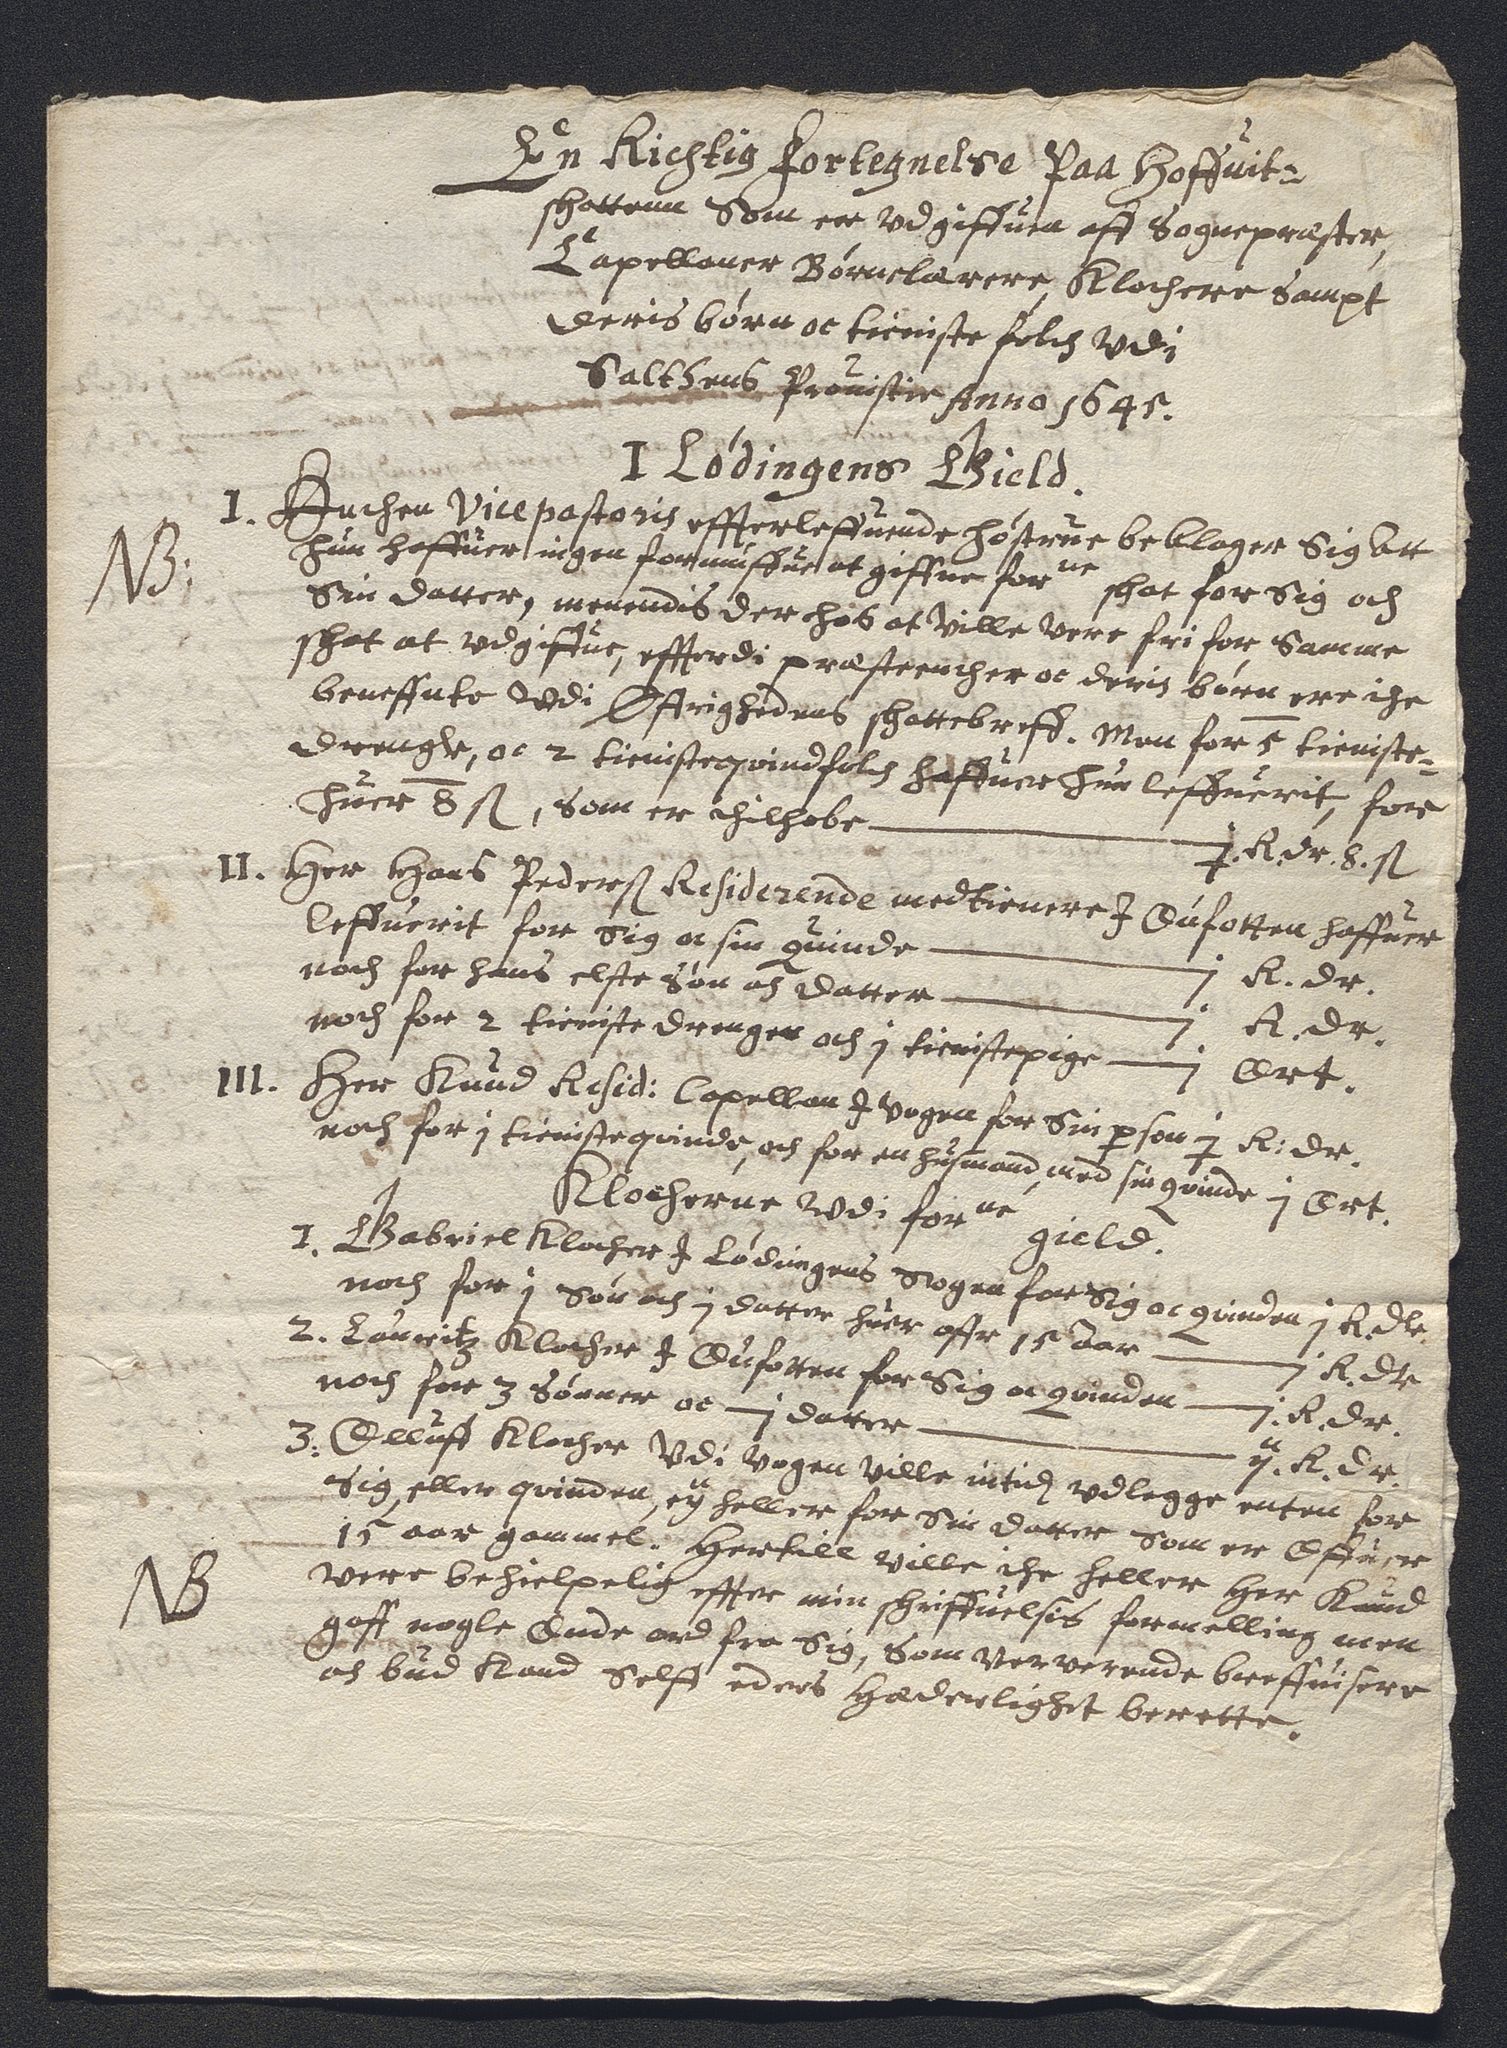 En Richtig Fortegnelse Paa Hoffuit=
skatten Som er vdgiffuen aff Sognepræster,
Capellaner Børnelærere, Klockere sampt
deris børn oc tieniste folck vdi
Salthens Prouistie Anno 1645.
I Lødingens Gield.
I. Enchen Vicepastoris effterleffuende høstrue beklager Sig att
NB: hun haffuer ingen formuffue at giffue forne skat for Sig och
Sin datter, menendis der hos at ville vere fri for samme
skat at vdgiffue, effterdi præsteencher oc deris børn ere iche
beneffnte vdi Øffrighedens skattebreff. Men for 5 tieniste=
drenge, oc 2 tienisteqvindfolch haffuer hun leffuerit, for
huer 8 ß, som er thilhobe j. R.dr. 8. ß
II. Her Hans Pederß Residerende medtienere I Oufotten haffuer
leffuerit for Sig oc sin Quinde j R. dr.
noch for hans elste Søn och datter j R. dr.
noch for 2 tieniste drenger och j tienistepige j Ort.
III. Her Knud Resid: Capellan I vogen for Sin person j R: dr.
noch for j tienisteqvinde, och for en husmand med sin qvinde j Ort.
Klockerne vdi forne gield.
1. Gabriel Klocker I Lødingens Sogen for Sig oc qvinden j R.dlr
noch for j Søn och j datter huer offr 15 Aar j R.dlr
2. Lauritz Klocher I Oufotten for Sig oc qvinden j. R.dr.
noch for 3 Sønner oc j datter ij. R. dr.
3. Olluff Klocher vdi vogen ville intid vdlegge enten for
Sig, eller qvinden, eÿ heller for Sin datter som er Offuer
15 aar gammel. Hertill ville iche heller Her Knud
NB vere behielpelig effter min skriffuelsis formelling men
gaff nogle Onde ord fra Sig, som ververende breffuisere
och bud Kand Selff eders Hæderlighet berette.